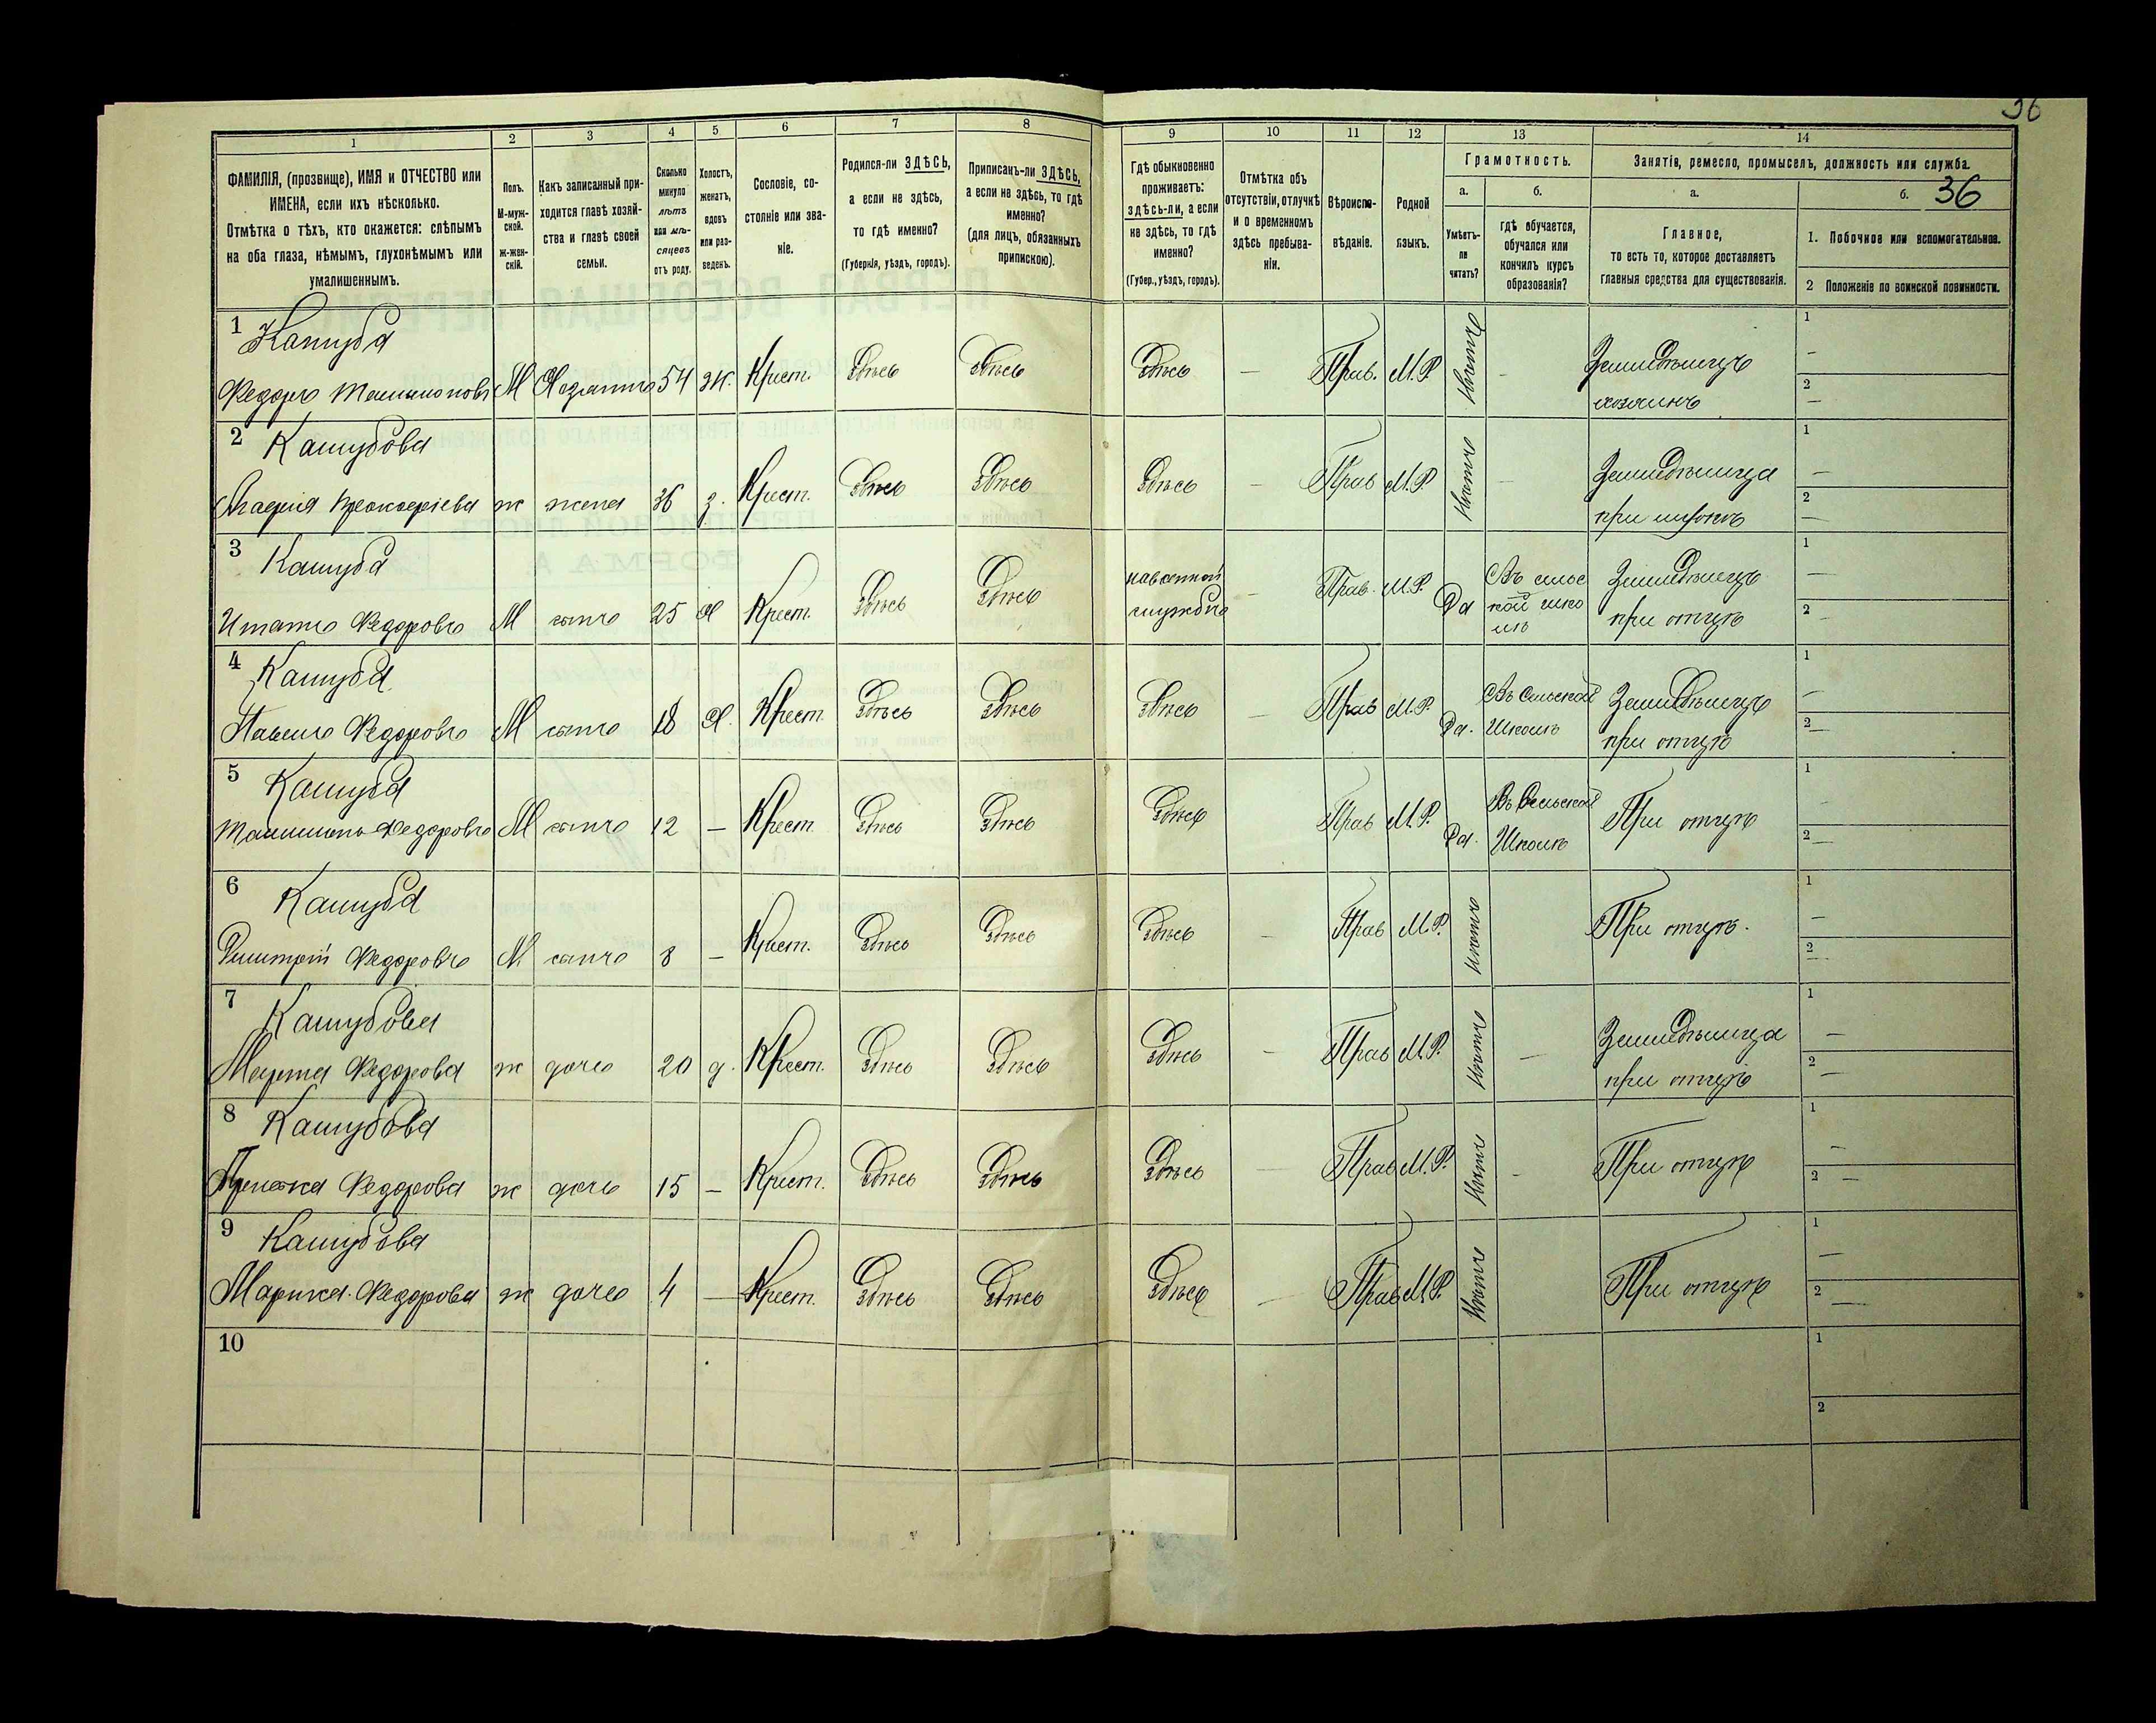 36
1 2 3 4 5 6 7 8 9 10 11 12 13 14
ФАМИЛІЯ, (прозвище), ИМЯ и ОТЧЕСТВО или
ИМЕНА, если ихъ нѣсколько.
Отмѣтка о тѣхъ, кто окажется: слѣпымъ
на оба глаза, нѣмымъ, глухонѣмымъ или
умалишеннымъ.
Полъ.
М-муж-
ской.
Ж-жен-
скій.
Какъ записанный при-
ходится главѣ хозяй-
ства и главѣ своей
семьи.
Сколько
минуло
лѣтъ
или мѣ-
сяцевъ
отъ роду.
Холостъ,
женатъ,
вдовъ
или раз-
веденъ.
Сословіе, со-
стояніе или зва-
ніе.
Родился-ли ЗДѢСЬ,
а если не здѣсь,
то гдѣ именно?
(Губернія, уѣздъ, городъ).
Приписанъ-ли ЗДѢСЬ,
а если не здѣсь, то гдѣ
именно?
(для лицъ, обязанныхъ
припискою).
Гдѣ обыкновенно
проживаетъ:
здѣсь-ли, а если
не здѣсь, то гдѣ
именно?
(Губер., уѣздъ, городъ).
Отмѣтка объ
отсутствіи, отлучкѣ
и о временномъ
здѣсь пребыва-
ніи.
Вѣроиспо-
вѣданіе.
Родной
языкъ.
Грамотность.
а. б.
Умѣетъ-
ли
читать?
гдѣ обучается,
обучался или
кончилъ курсъ
образованія?
Занятія, ремесло, промыселъ, должность или служба.
а. б. 36
Главное,
то есть то, которое доставляетъ
главныя средства для существованія.
1. Побочное или вспомогательное.
2 Положеніе по воинской повинности.
1 Кашуба
Федоръ М Хозяинъ 54 ж. Крест. Здѣсь Здѣсь Здѣсь — Прав. М.Р. Нѣтъ — Земледѣлецъ 1 —
хозяинъ 2 —
2 Кашубова
ж жена 36 з. Крест. Здѣсь Здѣсь Здѣсь — Прав М.Р. Нѣтъ — Земледѣлица 1 —
при мужѣ 2 —
3 Кашуба
Игнатъ Федоровъ М сынъ 25 Х Крест. Здѣсь Здѣсь на военной службѣ — Прав. М.Р. Да Въ сельс
кой шко
лѣ Земледѣлецъ 1 —
при отцѣ 2 —
4 Кашуба
Павелъ Федоровъ М сынъ 18 Х. Крест. Здѣсь Здѣсь Здѣсь — Прав М.Р. Да. Въ Сельской
Школѣ Земледѣлецъ 1 —
при отцѣ 2 —
5 Кашуба
Федоровъ М сынъ 12 — Крест. Здѣсь Здѣсь Здѣсь Прав М.Р. Да. Въ Сельской
Школѣ При отцѣ 1 —
2 —
6 Кашуба
Дмитрій Федоровъ М сынъ 8 — Крест. Здѣсь Здѣсь Здѣсь — Прав М.Р. Нѣтъ При отцѣ. 1 —
2 —
7 Кашубова
Марта Федорова ж дочь 20 д. Крест. Здѣсь Здѣсь Здѣсь — Прав М.Р. Нѣтъ — Земледѣлица 1 —
при отцѣ 2 —
8 Кашубова
Федорова ж дочь 15 — Крест. Здѣсь Здѣсь Здѣсь — Прав М.Р. Нѣтъ — При отцѣ 1 —
2 —
9 Кашубова
Федорова ж дочь 4 — Крест. Здѣсь Здѣсь Здѣсь — Прав М.Р. Нѣтъ При отцѣ 1 —
2 —
10 1
2